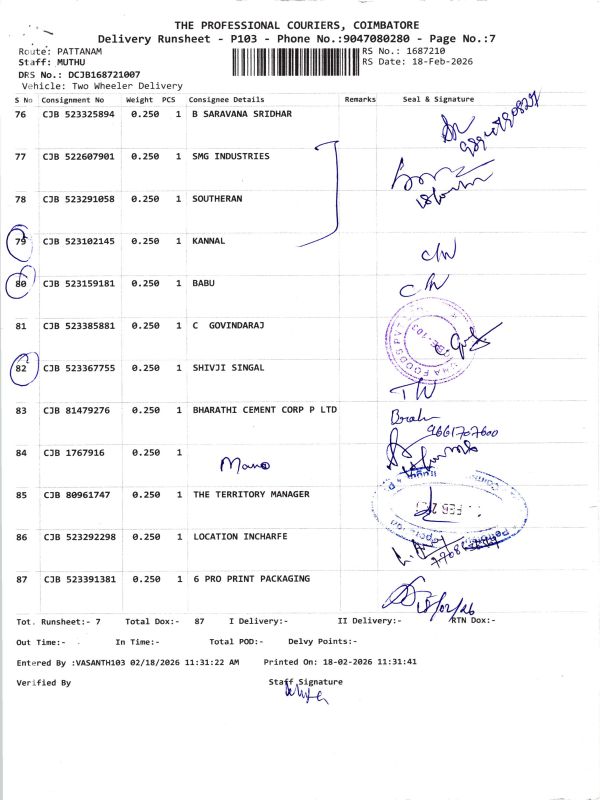 THE PROFESSIONAL COURIERS, COIMBATORE
Delivery Runsheet - P103 - Phone No.:9047080280 - Page No.:7
Route: PATTANAM RS No.: 1687210
Staff: MUTHU RS Date: 18-Feb-2026
DRS No.: DCJB168721007
Vehicle: Two Wheeler Delivery
S No Consignment No Weight PCS Consignee Details Remarks Seal & Signature
76 CJB 523325894 0.250 1 B SARAVANA SRIDHAR
77 CJB 522607901 0.250 1 SMG INDUSTRIES
78 CJB 523291058 0.250 1 SOUTHERAN
79 CJB 523102145 0.250 1 KANNAL
80 CJB 523159181 0.250 1 BABU
81 CJB 523385881 0.250 1 C GOVINDARAJ
82 CJB 523367755 0.250 1 SHIVJI SINGAL
83 CJB 81479276 0.250 1 BHARATHI CEMENT CORP P LTD
9661707600
84 CJB 1767916 0.250 1
Mano
85 CJB 80961747 0.250 1 THE TERRITORY MANAGER
86 CJB 523292298 0.250 1 LOCATION INCHARFE
87 CJB 523391381 0.250 1 6 PRO PRINT PACKAGING
18/02/26
Tot. Runsheet:- 7 Total Dox:- 87 I Delivery:- II Delivery:- RTN Dox:-
Out Time:- In Time:- Total POD:- Delvy Points:-
Entered By :VASANTH103 02/18/2026 11:31:22 AM Printed On: 18-02-2026 11:31:41
Verified By Staff Signature